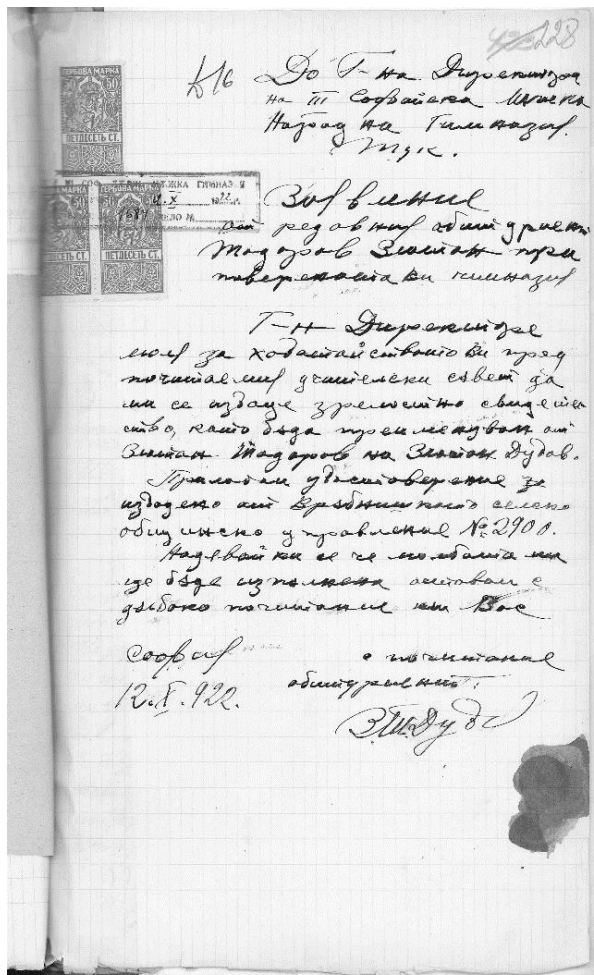 228
№ 16
До Г-на Директора
на III Софийска Мъжка
Народна Гимназия.
Тук.
ГЕРБОВА МАРКА
50 50
ПЕТДЕСЕТЬ СТ.
ГЕРБОВА МАРКА ГЕРБОВА МАРКА
50 50
ПЕТДЕСЕТЬ СТ. ПЕТДЕСЕТЬ СТ.
III СОФ. МѪЖКА ГИМНАЗ.
X 22 г.
ДЕЛО №
Заявление
от редовния абитуриент
Тодоров Златан при
поверената ви гимназия
Г-н Директоре
моля за ходатайството ви пред
почитаемия учителски съвет да
ми се издаде зрелостно свидетел
ство, като бъда преименуван от
Златан Тодоров на Златан Дудов.
Прилагам удостоверение за
издадено от Връбнишкото селско
общинско управление № 2900.
Надявайки се че молбата ми
ще бъде изпълнена оставам с
дълбоко почитание към Вас
София
12.X.922.
с почитание
абитуриент:
З.Т.Дудов